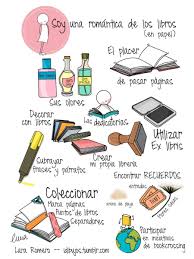 Soy una romántica de los libros
(en papel)
El placer
de pasar páginas
Sus olores
Decorar
con libros
Las dedicatorias
Utilizar
Ex libris
Subrayar
frases y párrafos
Crear
mi propia librería
Encontrar RECUERDOS
entradas
Coleccionar
Marca páginas
Puntos de libros
Separadores
Participar
en iniciativas
de bookcrossing
Lara Romero - idibujos.tumblr.com